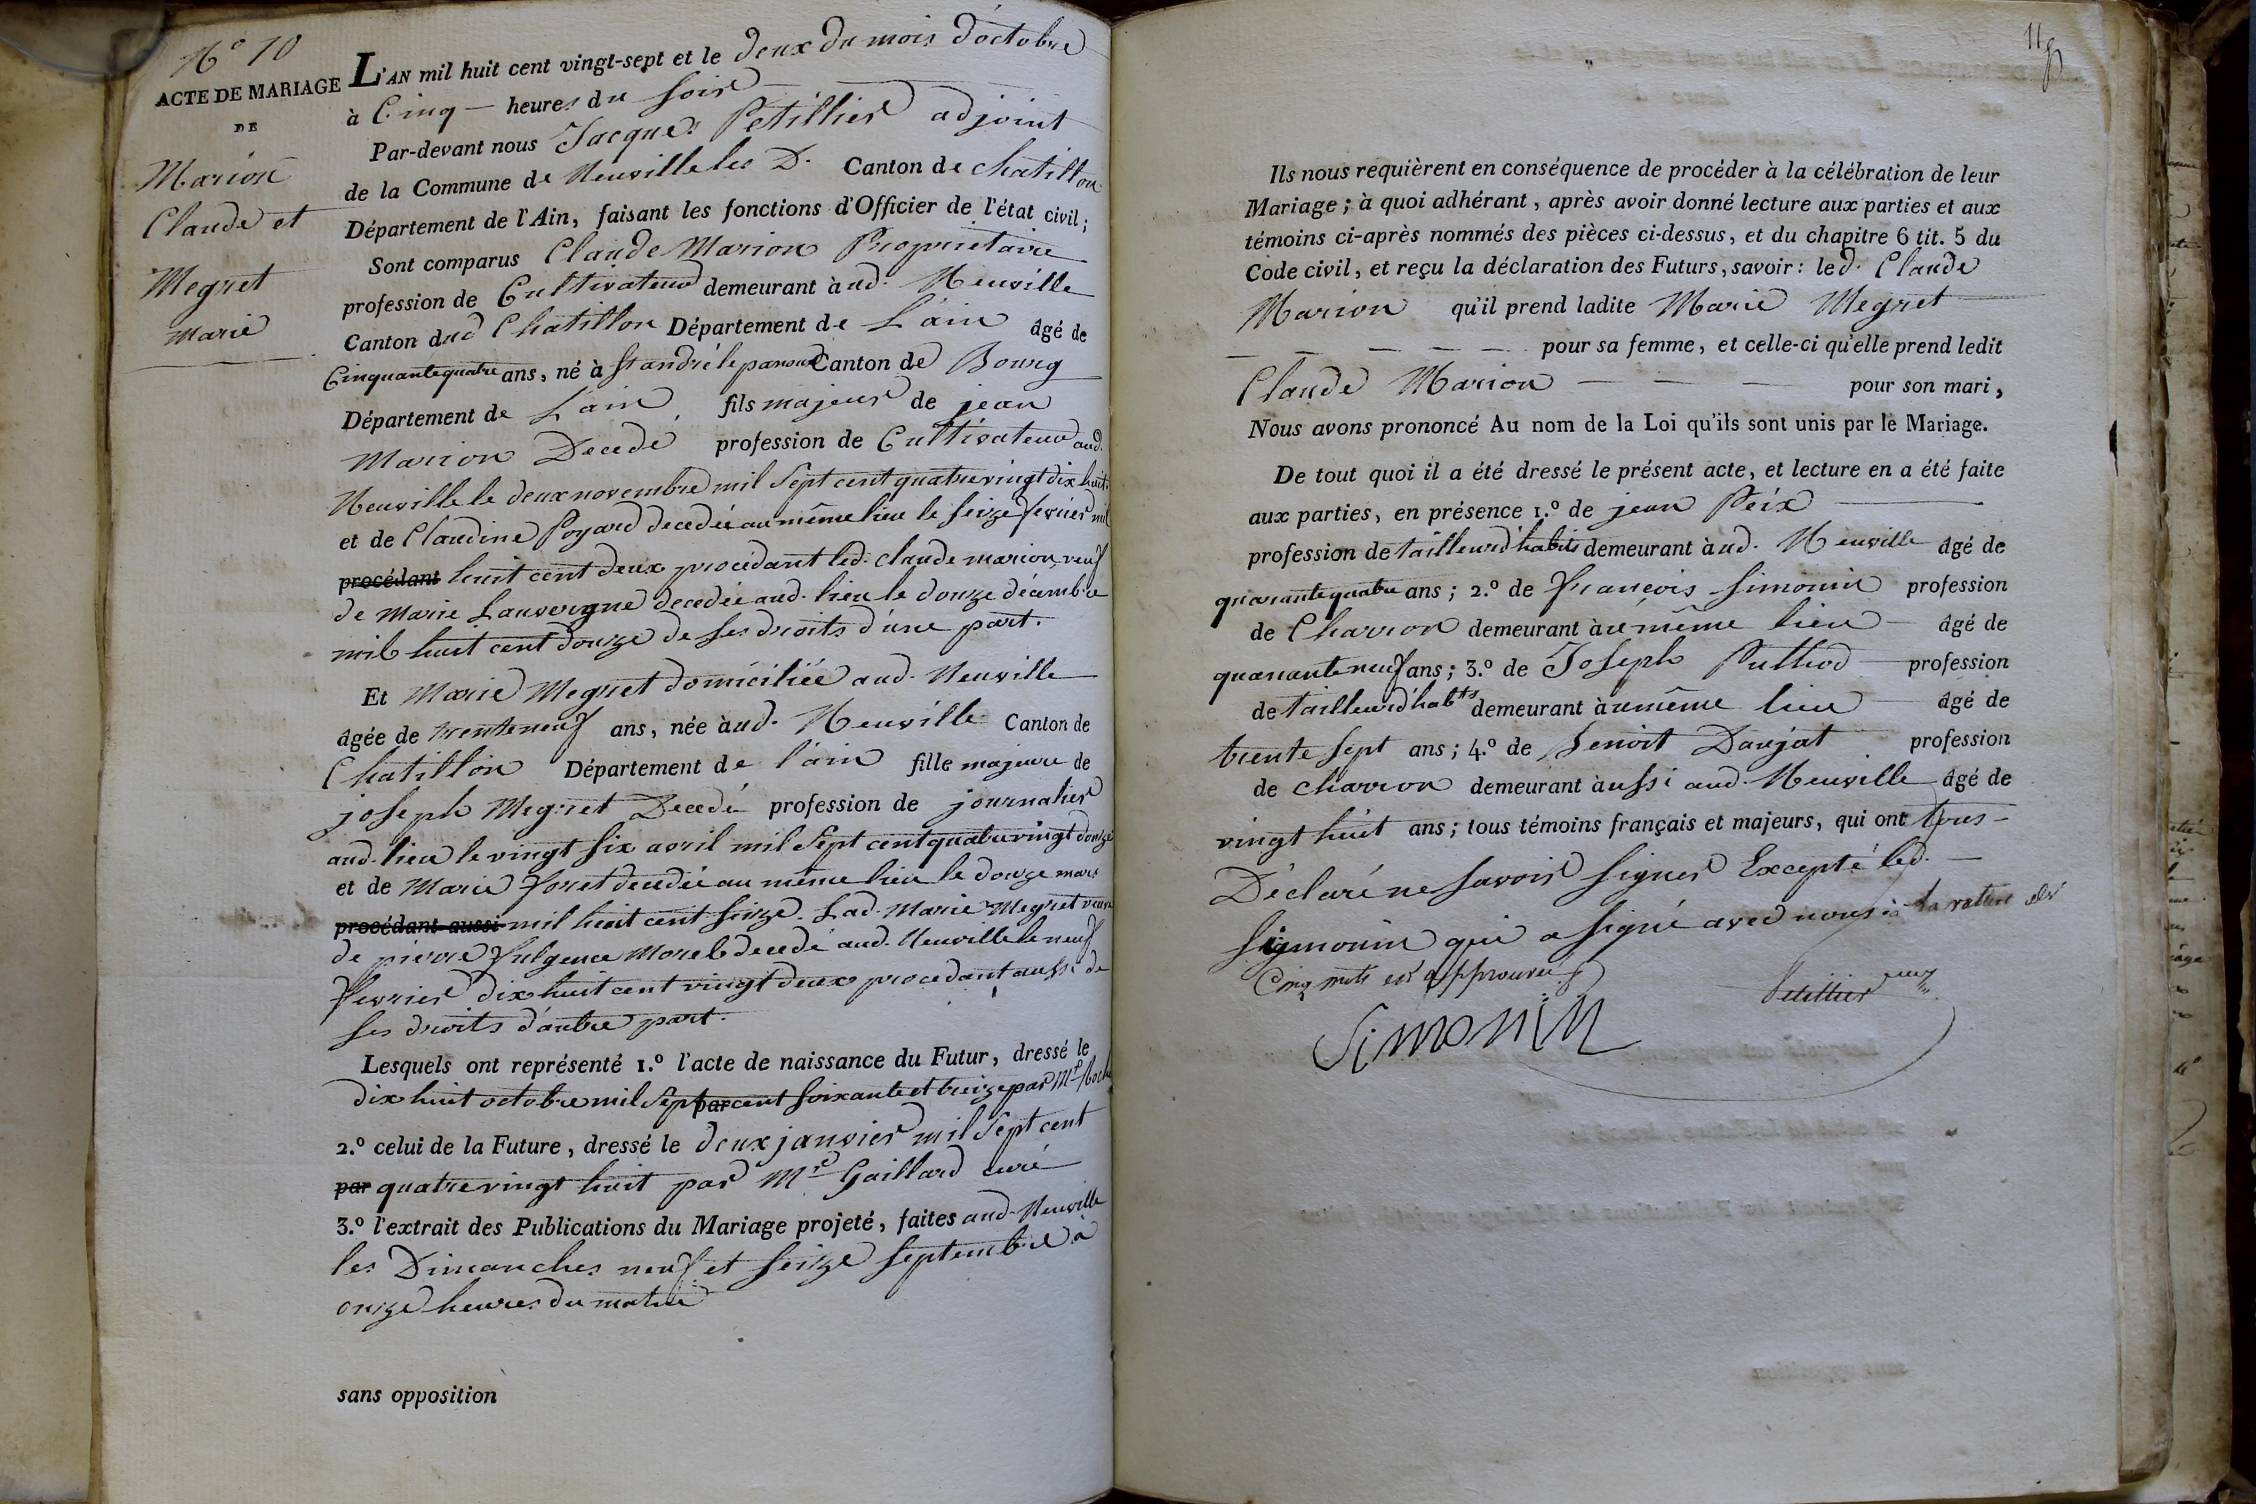 N° 10
ACTE DE MARIAGE
DE
Marion
Claude et
Megret
Marie
L'AN mil huit cent vingt-sept et le deux du mois d'octobre
à Cinq — heures du soir —
Par-devant nous Jacques Petillier adjoint
de la Commune de Neuville les D. Canton de chatillon
Département de l'Ain, faisant les fonctions d'Officier de l'état civil;
Sont comparus Claude Marion Proprietaire
profession de Cultivateur demeurant à aud. Neuville
Canton dud Chatillon Département de L'ain âgé de
Cinquantequatre ans, né à St andré le panoux Canton de Bourg
Département de L'ain fils majeur de jean
Marion Decedé profession de Cultivateur aud.
Neuville le deux novembre mil Sept cent quatrevingt dix huit
et de Claudine Poyard decedée au même lieu le Seize fevrier mil
procédant huit cent deux procedant led. claude marion veuf
de Marie Lauvergne decedée aud. lieu le douze décembre
mil huit cent douze de ses droits d'une part.
Et Marie Megret domiciliée aud. Neuville
âgée de trenteneuf ans, née à aud. Neuville Canton de
Chatillon Département de l'ain fille majeure de
joseph Megret Decedé profession de journalier
aud. lieu le vingt six avril mil Sept cent quatrevingt douze
et de Marie foret decedée au même lieu le douze mars
procédant aussi mil huit cent seize. Lad. Marie Megret veuve
de pierre fulgence Morel decedé aud. Neuville le neuf
fevrier dix huit cent vingt deux procedant aussi de
ses droits d'autre part.
Lesquels ont représenté 1.° l'acte de naissance du Futur, dressé le
dix huit octobre mil Sept par cent soixante et treize par Mr
2.° celui de la Future, dressé le deux janvier mil Sept cent
par quatrevingt huit par Mr Gaillard curé
3.° l'extrait des Publications du Mariage projeté, faites aud. Neuville
les Dimanches neuf et seize septembre à
onze heures du matin
sans opposition
11
Ils nous requièrent en conséquence de procéder à la célébration de leur
Mariage; à quoi adhérant, après avoir donné lecture aux parties et aux
témoins ci-après nommés des pièces ci-dessus, et du chapitre 6 tit. 5 du
Code civil, et reçu la déclaration des Futurs, savoir: led. Claude
Marion qu'il prend ladite Marie Megret —
— — — — — pour sa femme, et celle-ci qu'elle prend ledit
Claude Marion — — — pour son mari,
Nous avons prononcé Au nom de la Loi qu'ils sont unis par le Mariage.
De tout quoi il a été dressé le présent acte, et lecture en a été faite
aux parties, en présence 1.° de jean Peix —
profession de tailleur d'habits demeurant à aud. Neuville âgé de
quarantequatre ans; 2.° de françois simonin profession
de Charron demeurant à u même lieu — âgé de
quaranteneuf ans; 3.° de Joseph Pulliod — profession
de tailleur d'habts demeurant à u même lieu — âgé de
trente sept ans; 4.° de Benoit Daujat profession
de charron demeurant à ussi aud. Neuville — âgé de
vingt huit ans; tous témoins français et majeurs, qui ont tous —
Déclaré ne savoir signer Excepté led. —
Sigmonin qui a signé avec nous à la rature de
Cinq mots est approuvée
Simonin
Petillier